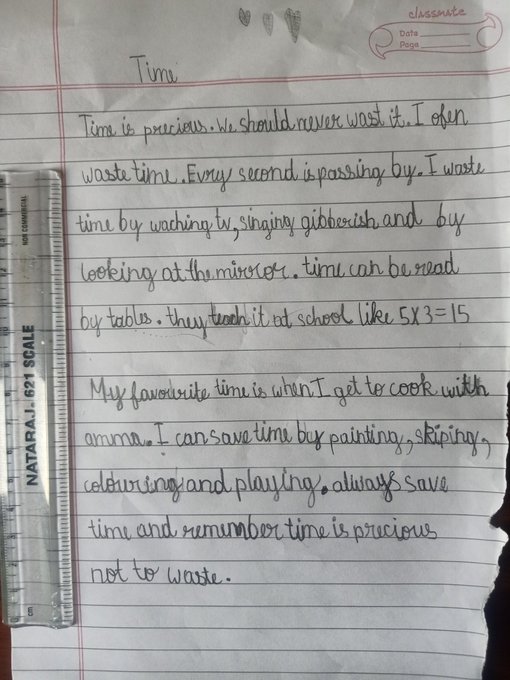 classmate
Date
Page
Time
Time is precious. We should never wast it. I ofen
waste time. Evry second is passing by. I waste
time by waching tv, singing gibberish and by
looking at the mirror. time can be read
by tables. they teach it at school like 5x3=15
My favourite time is when I get to cook with
amma. I can save time by painting, skiping,
colouring and playing. always save
time and remember time is precious
not to waste.
NON COMMERCIAL
NATARAJ. 621 SCALE
cm